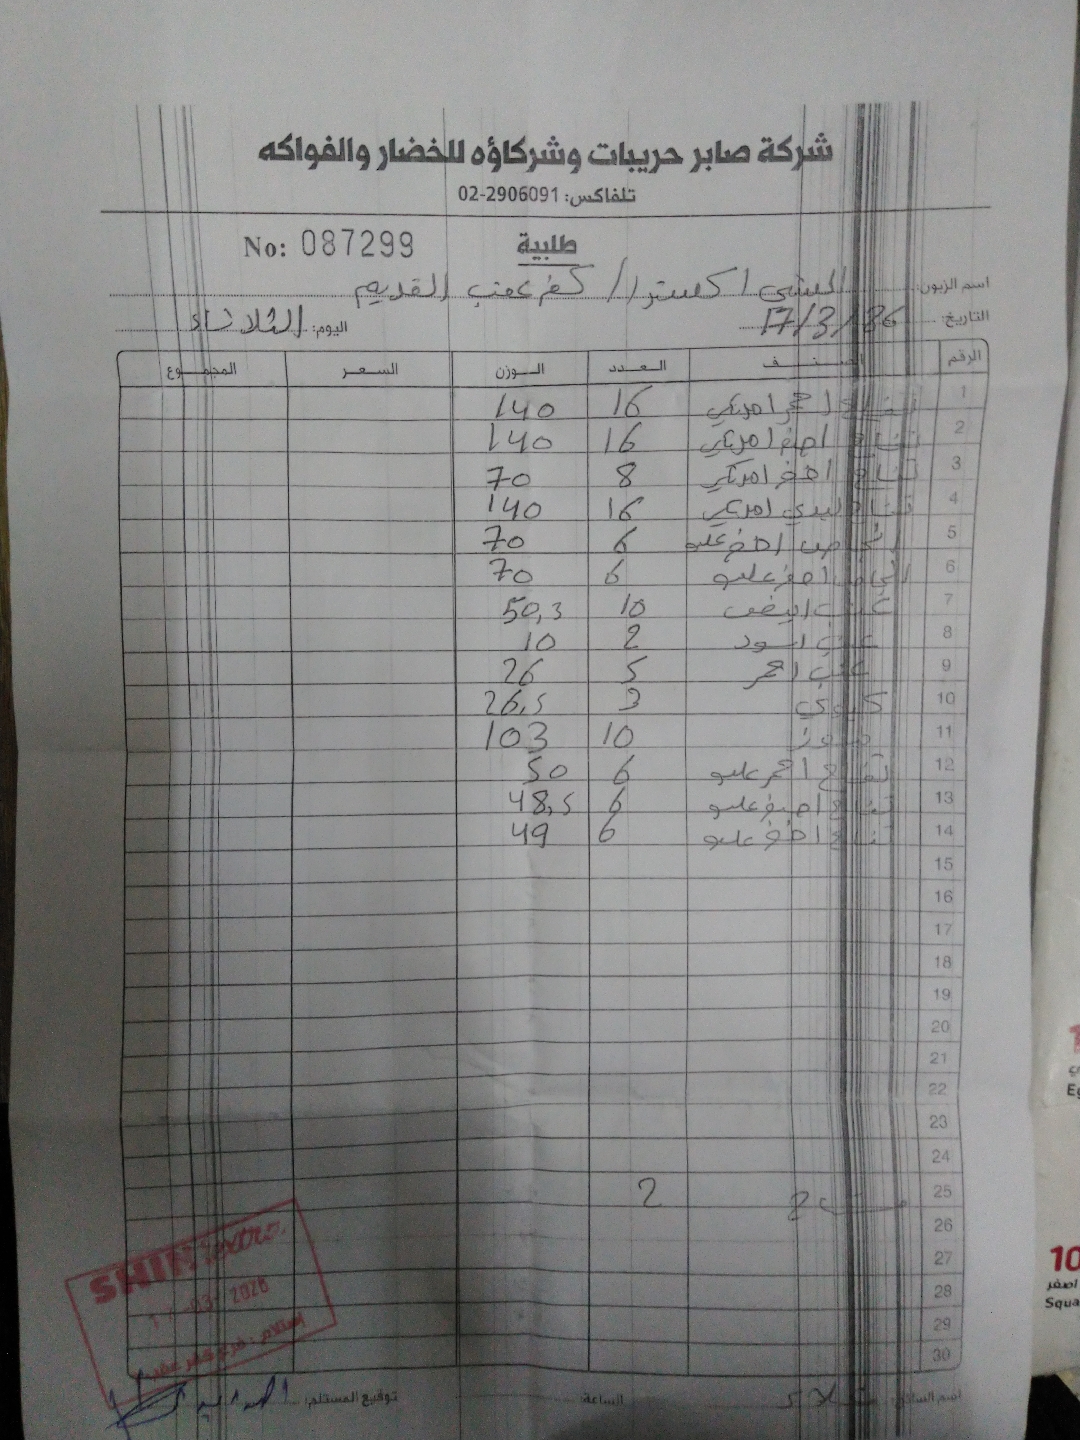 شركة صابر حريبات وشركاؤه للخضار والفواكه
تلفاكس: 02-2906091
No: 087299
طلبية
اسم الزبون: الشني اكسترا / كفر عقب القديم
التاريخ: 17/3/26 اليوم: الثلاثاء
الرقم الصنف العدد الوزن السعر المجموع
1 تفاح احمر امريكي 16 140
2 تفاح اصفر امريكي 16 140
3 تفاح اخضر امريكي 8 70
4 تفاح ليدي امريكي 16 140
5 اجاص اخضر علبو 6 70
6 اجاص اصفر علبو 6 70
7 عنب ابيض 10 50,3
8 عنب اسود 2 10
9 عنب احمر 5 26
10 كيوي 3 26,5
11 موز 10 103
12 تفاح احمر علبو 6 50
13 تفاح اصفر علبو 6 48,5
14 تفاح اخضر علبو 6 49
15
16
17
18
19
20
21
22
23
24
25 2
26
27
28
29
30
SHINI extra
17-03-2026
إستلام: فرع كفر عقب
اسم السائق: الساعة: توقيع المستلم:
10
اصفر
Squa
Eg